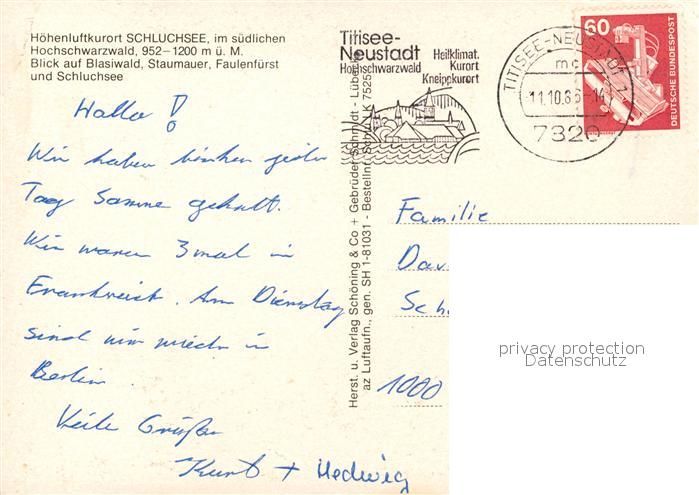 Höhenluftkurort SCHLUCHSEE, im südlichen
Hochschwarzwald, 952–1200 m ü. M.
Blick auf Blasiwald, Staumauer, Faulenfürst
und Schluchsee
Titisee-
Neustadt
Hochschwarzwald
Heilklimat.
Kurort
Kneippkurort
TITISEE-NEUSTADT 1
mc
11.10.86-14
7820
60
DEUTSCHE BUNDESPOST
Hallo!
Wir haben bisher jeden
Tag Sonne gehabt.
Wir waren 3mal in
Frankreich. Am Dienstag
sind wir wieder in
Berlin.
Viele Grüße
Kurt + Hedwig
Herst. u. Verlag Schöning & Co + Gebrüder Schmidt - Lübeck
az Luftaufn., gen. SH 1-81031 - Bestellnr. SchlLK 7525
Familie
Dav
Sch
1000
privacy protection
Datenschutz